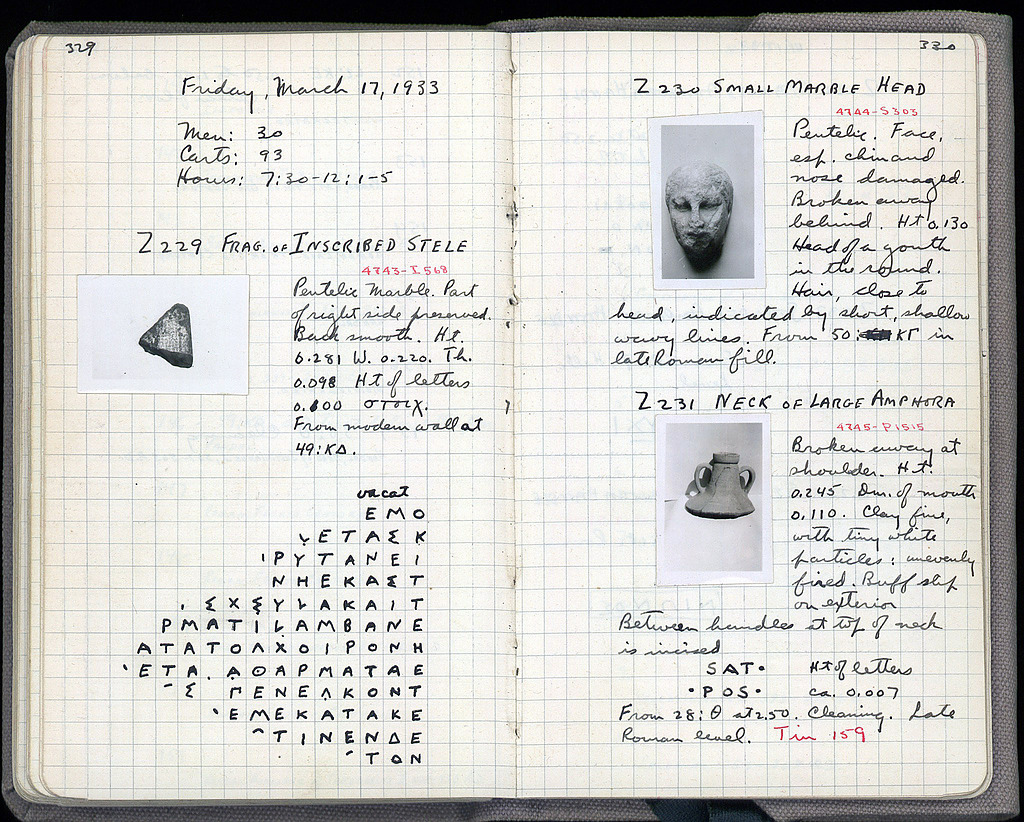 329
Friday, March 17, 1933
Men: 30
Carts: 93
Hours: 7:30-12; 1-5
Z 229 FRAG. OF INSCRIBED STELE
4743-I 568
Pentelic Marble. Part
of right side preserved.
Back smooth. Ht.
0.281 W. 0.220. Th.
0.098 Ht of letters
στοιχ.
From modern wall at
49:ΚΔ.
vacat
Ε Μ Ο
Ε Τ Α Σ Κ
Ρ Υ Τ Α Ν Ε Ι
Ν Η Ε Κ Α Σ Τ
Λ Α Κ Α Ι Τ
Ρ Μ Α Τ Ι Λ Α Μ Β Α Ν Ε
Α Τ Α Τ Ο Λ Χ Ο Ι Ρ Ο Ν Η
Ε Τ Α . Α Θ Α Ρ Μ Α Τ Α Ε
Γ Ε Ν Ε Λ Κ Ο Ν Τ
Ε Μ Ε Κ Α Τ Α Κ Ε
Τ Ι Ν Ε Ν Δ Ε
Τ Ο Ν
330
Z 230 SMALL MARBLE HEAD
4744-S 303
Pentelic. Face,
esp. chin and
nose damaged.
Broken away
behind. Ht 0.130
Head of a youth
in the round.
Hair, close to
head, indicated by short, shallow
wavy lines. From 50: ΚΓ in
late Roman fill.
Z 231 NECK OF LARGE AMPHORA
4745-P 1515
Broken away at
shoulder. Ht.
0.245 Dm. of mouth
0.110. Clay fine,
with tiny white
particles; unevenly
fired. Buff slip
on exterior
Between handles at top of neck
is incised
SAT• Ht of letters
•POS• ca. 0.007
From 28:Θ at 2.50. Cleaning. Late
Roman level. Tin 159